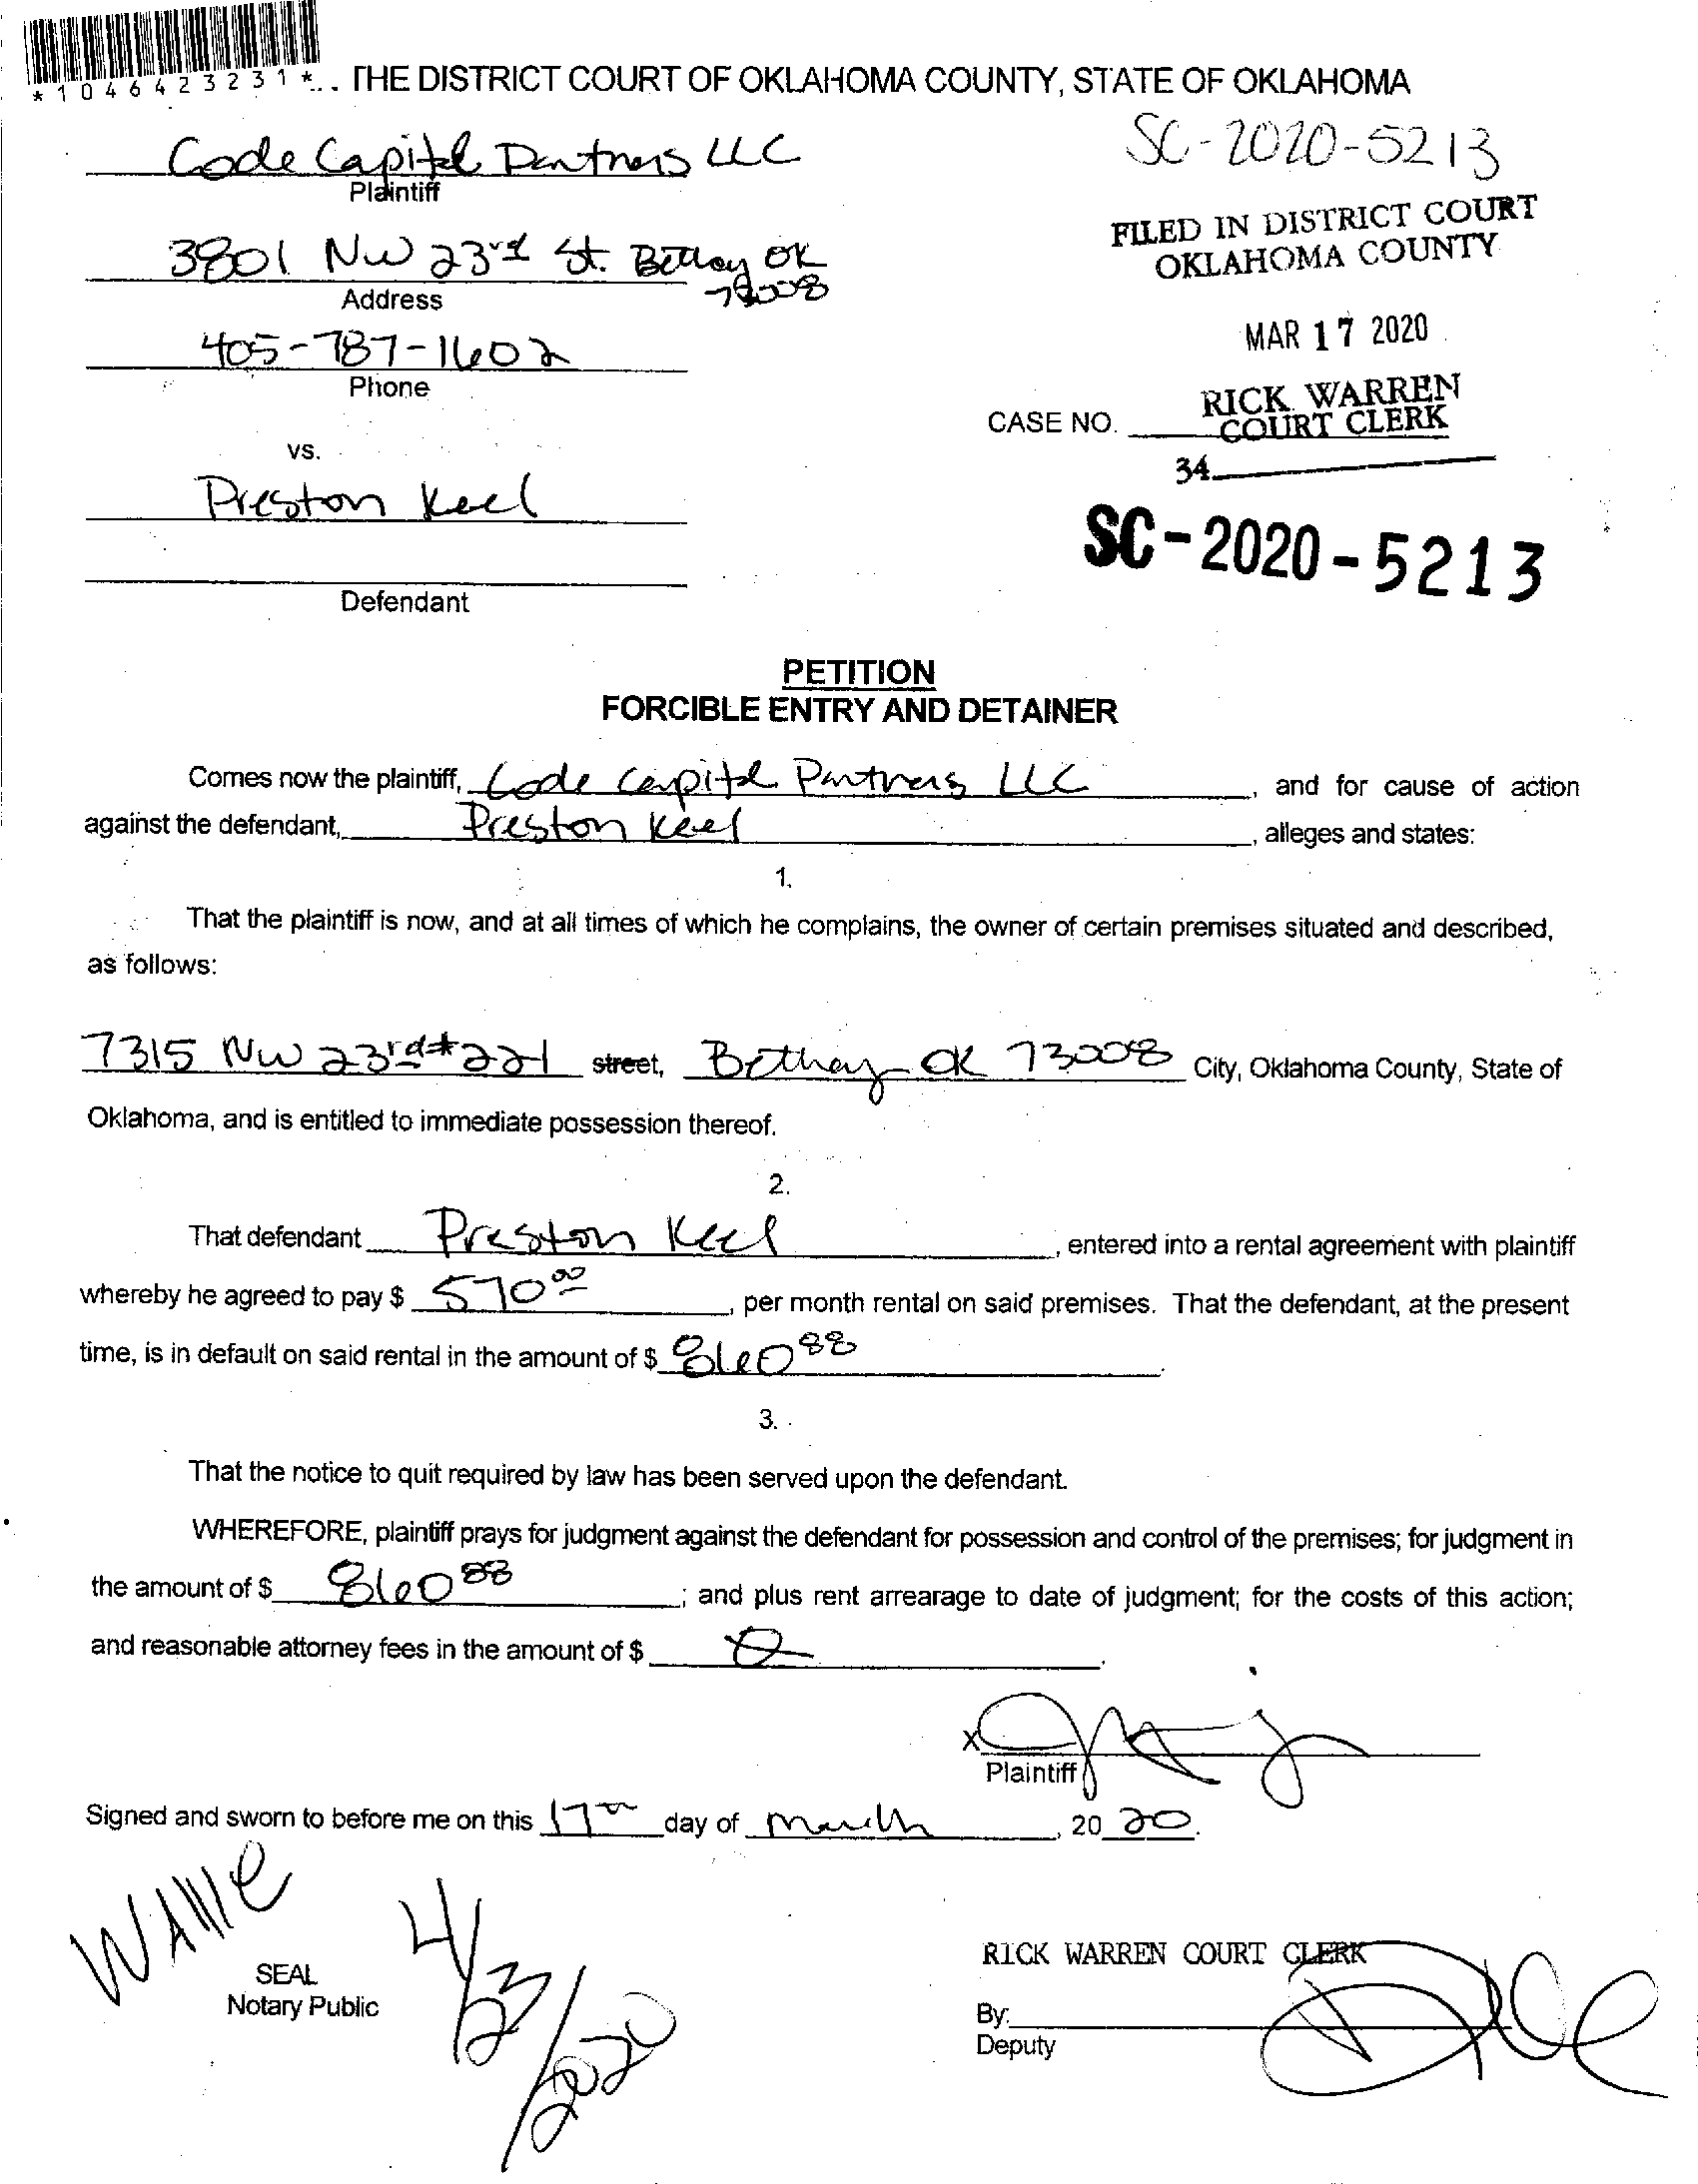 *1046423231*
THE DISTRICT COURT OF OKLAHOMA COUNTY, STATE OF OKLAHOMA
Code Capital Partners LLC
Plaintiff
SC-2020-5213
FILED IN DISTRICT COURT
OKLAHOMA COUNTY
3801 NW 23rd St. Bethany OK
73008
Address
MAR 17 2020
405-787-1602
Phone
RICK WARREN
CASE NO. COURT CLERK
34
vs.
Preston Keel
SC-2020-5213
Defendant
PETITION
FORCIBLE ENTRY AND DETAINER
Comes now the plaintiff, Code Capital Partners LLC, and for cause of action
against the defendant, Preston Keel, alleges and states:
1.
That the plaintiff is now, and at all times of which he complains, the owner of certain premises situated and described,
as follows:
7315 NW 23rd #221 street, Bethany OK 73008 City, Oklahoma County, State of
Oklahoma, and is entitled to immediate possession thereof.
2.
That defendant Preston Keel, entered into a rental agreement with plaintiff
whereby he agreed to pay $ 570 00, per month rental on said premises. That the defendant, at the present
time, is in default on said rental in the amount of $ 860 88.
3.
That the notice to quit required by law has been served upon the defendant.
WHEREFORE, plaintiff prays for judgment against the defendant for possession and control of the premises; for judgment in
the amount of $ 860 88; and plus rent arrearage to date of judgment; for the costs of this action;
and reasonable attorney fees in the amount of $ 0.
X
Plaintiff
Signed and sworn to before me on this 17th day of March, 2020.
4/23/2020
SEAL
Notary Public
RICK WARREN COURT CLERK
By:
Deputy